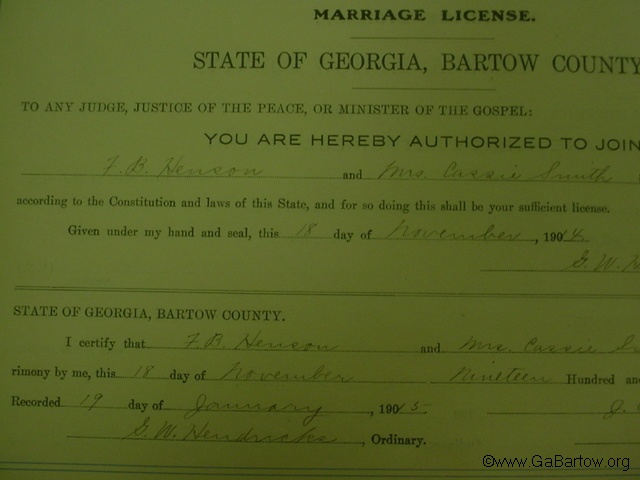 MARRIAGE LICENSE.
STATE OF GEORGIA, BARTOW COUNTY
TO ANY JUDGE, JUSTICE OF THE PEACE, OR MINISTER OF THE GOSPEL:
YOU ARE HEREBY AUTHORIZED TO JOIN
F. B. Henson and Mrs. Cassie Smith
according to the Constitution and laws of this State, and for so doing this shall be your sufficient license.
Given under my hand and seal, this 18 day of November, 1914.
G. W. H
STATE OF GEORGIA, BARTOW COUNTY.
I certify that F. B. Henson and Mrs. Cassie
rimony by me, this 18 day of November Nineteen Hundred an
Recorded 19 day of January, 1915.
G. W. Hendricks, Ordinary.
©www.GaBartow.org